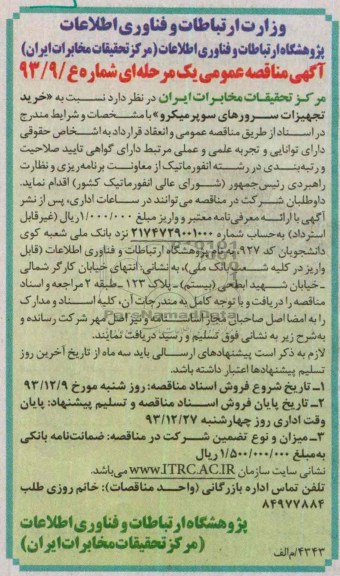 وزارت ارتباطات و فناوری اطلاعات
پژوهشگاه ارتباطات و فناوری اطلاعات (مرکز تحقیقات مخابرات ایران)
آگهی مناقصه عمومی یک مرحله‌ای شماره ع /۹۳/۹
مرکز تحقیقات مخابرات ایران در نظر دارد نسبت به «خرید
تجهیزات سرورهای سوپرمیکرو» با مشخصات و شرایط مندرج
در اسناد از طریق مناقصه عمومی و انعقاد قرارداد به اشخاص حقوقی
دارای توانایی و تجربه علمی و عملی مرتبط دارای گواهی تایید صلاحیت
و رتبه‌بندی در رشته انفورماتیک از معاونت برنامه‌ریزی و نظارت
راهبردی رئیس جمهور (شورای عالی انفورماتیک کشور) اقدام نماید.
داوطلبان شرکت در مناقصه می‌توانند در ساعات اداری، پس از نشر
آگهی با ارائه معرفی‌نامه معتبر و واریز مبلغ ۱/۰۰۰/۰۰۰ ریال (غیرقابل
استرداد) به‌حساب شماره ۲۱۷۴۷۲۹۰۰۱۰۰۰ نزد بانک ملی شعبه کوی
دانشجویان کد ۹۳۷ پژوهشگاه ارتباطات و فناوری اطلاعات (قابل
واریز در کلیه شعب بانک ملی)، به نشانی: انتهای خیابان کارگر شمالی
ـ خیابان شهید ابطحی (بیستم) ـ پلاک ۱۲۳ ـ طبقه ۲ مراجعه و اسناد
مناقصه را دریافت و با توجه کامل به مندرجات آن، کلیه اسناد و مدارک
را به امضا اصل صاحبان مجاز و نیز اصل مهر شرکت رسانده و
به‌شرح زیر به نشانی فوق تسلیم و رسید دریافت نمایند.
لازم به ذکر است پیشنهادهای ارسالی باید سه ماه از تاریخ آخرین روز
تسلیم پیشنهادها اعتبار داشته باشد.
۱ـ تاریخ شروع فروش اسناد مناقصه: روز شنبه مورخ ۹۳/۱۲/۹
۲ـ تاریخ پایان فروش اسناد مناقصه و تسلیم پیشنهاد: پایان
وقت اداری روز چهارشنبه ۹۳/۱۲/۲۷
۳ـ میزان و نوع تضمین شرکت در مناقصه: ضمانت‌نامه بانکی
به‌مبلغ ۱/۵۰۰/۰۰۰/۰۰۰ ریال
نشانی سایت سازمان WWW.ITRC.AC.IR می‌باشد.
تلفن تماس اداره بازرگانی (واحد مناقصات): خانم روزی طلب
۸۴۹۷۷۸۸۴
پژوهشگاه ارتباطات و فناوری اطلاعات
(مرکز تحقیقات مخابرات ایران)
۴۳۴۳/م الف